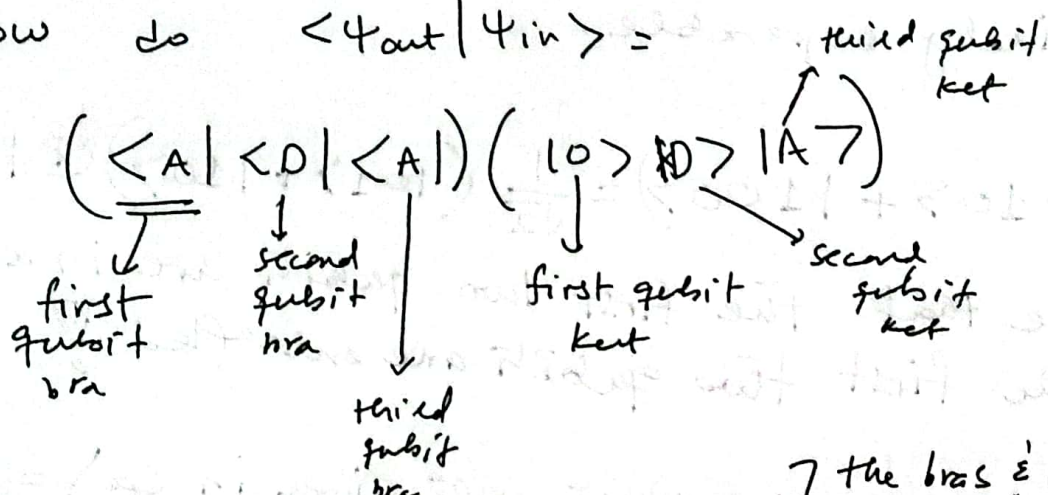 ow do <Ψout | Ψin> =
third qubit
ket
(<A| <D| <A|) (|0> |D> |A>)
first
qubit
bra
second
qubit
bra
third
qubit
bra
first qubit
ket
second
qubit
ket
the bras &